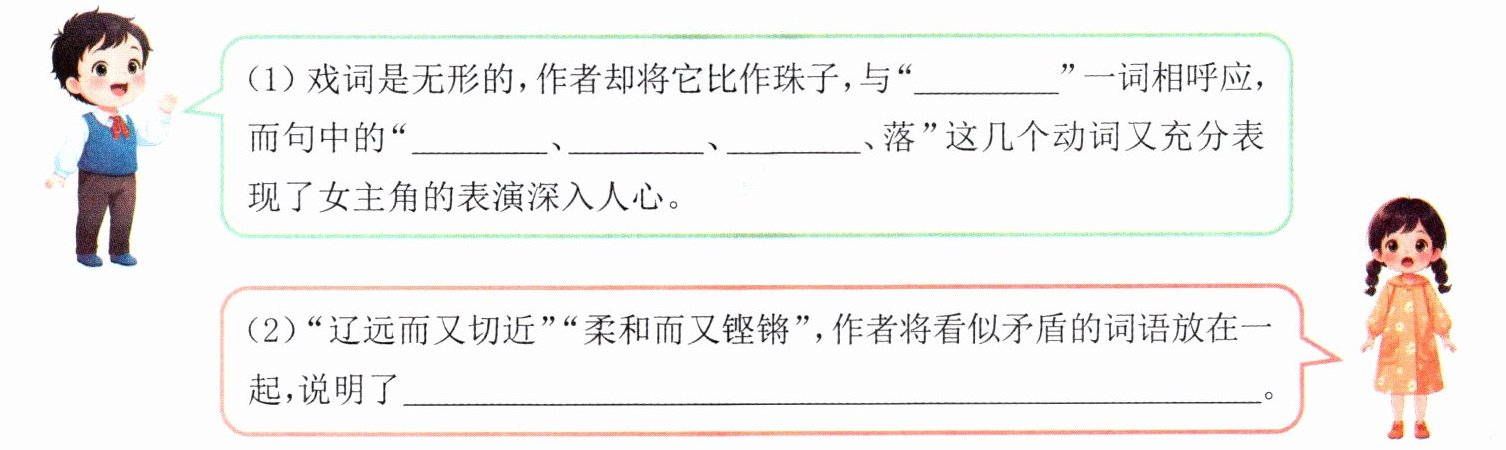 (1) 戏词是无形的,作者却将它比作珠子,与“________”一词相呼应,
而句中的“________、________、________、落”这几个动词又充分表
现了女主角的表演深入人心。
(2)“辽远而又切近”“柔和而又铿锵”,作者将看似矛盾的词语放在一
起,说明了________________________________________________。